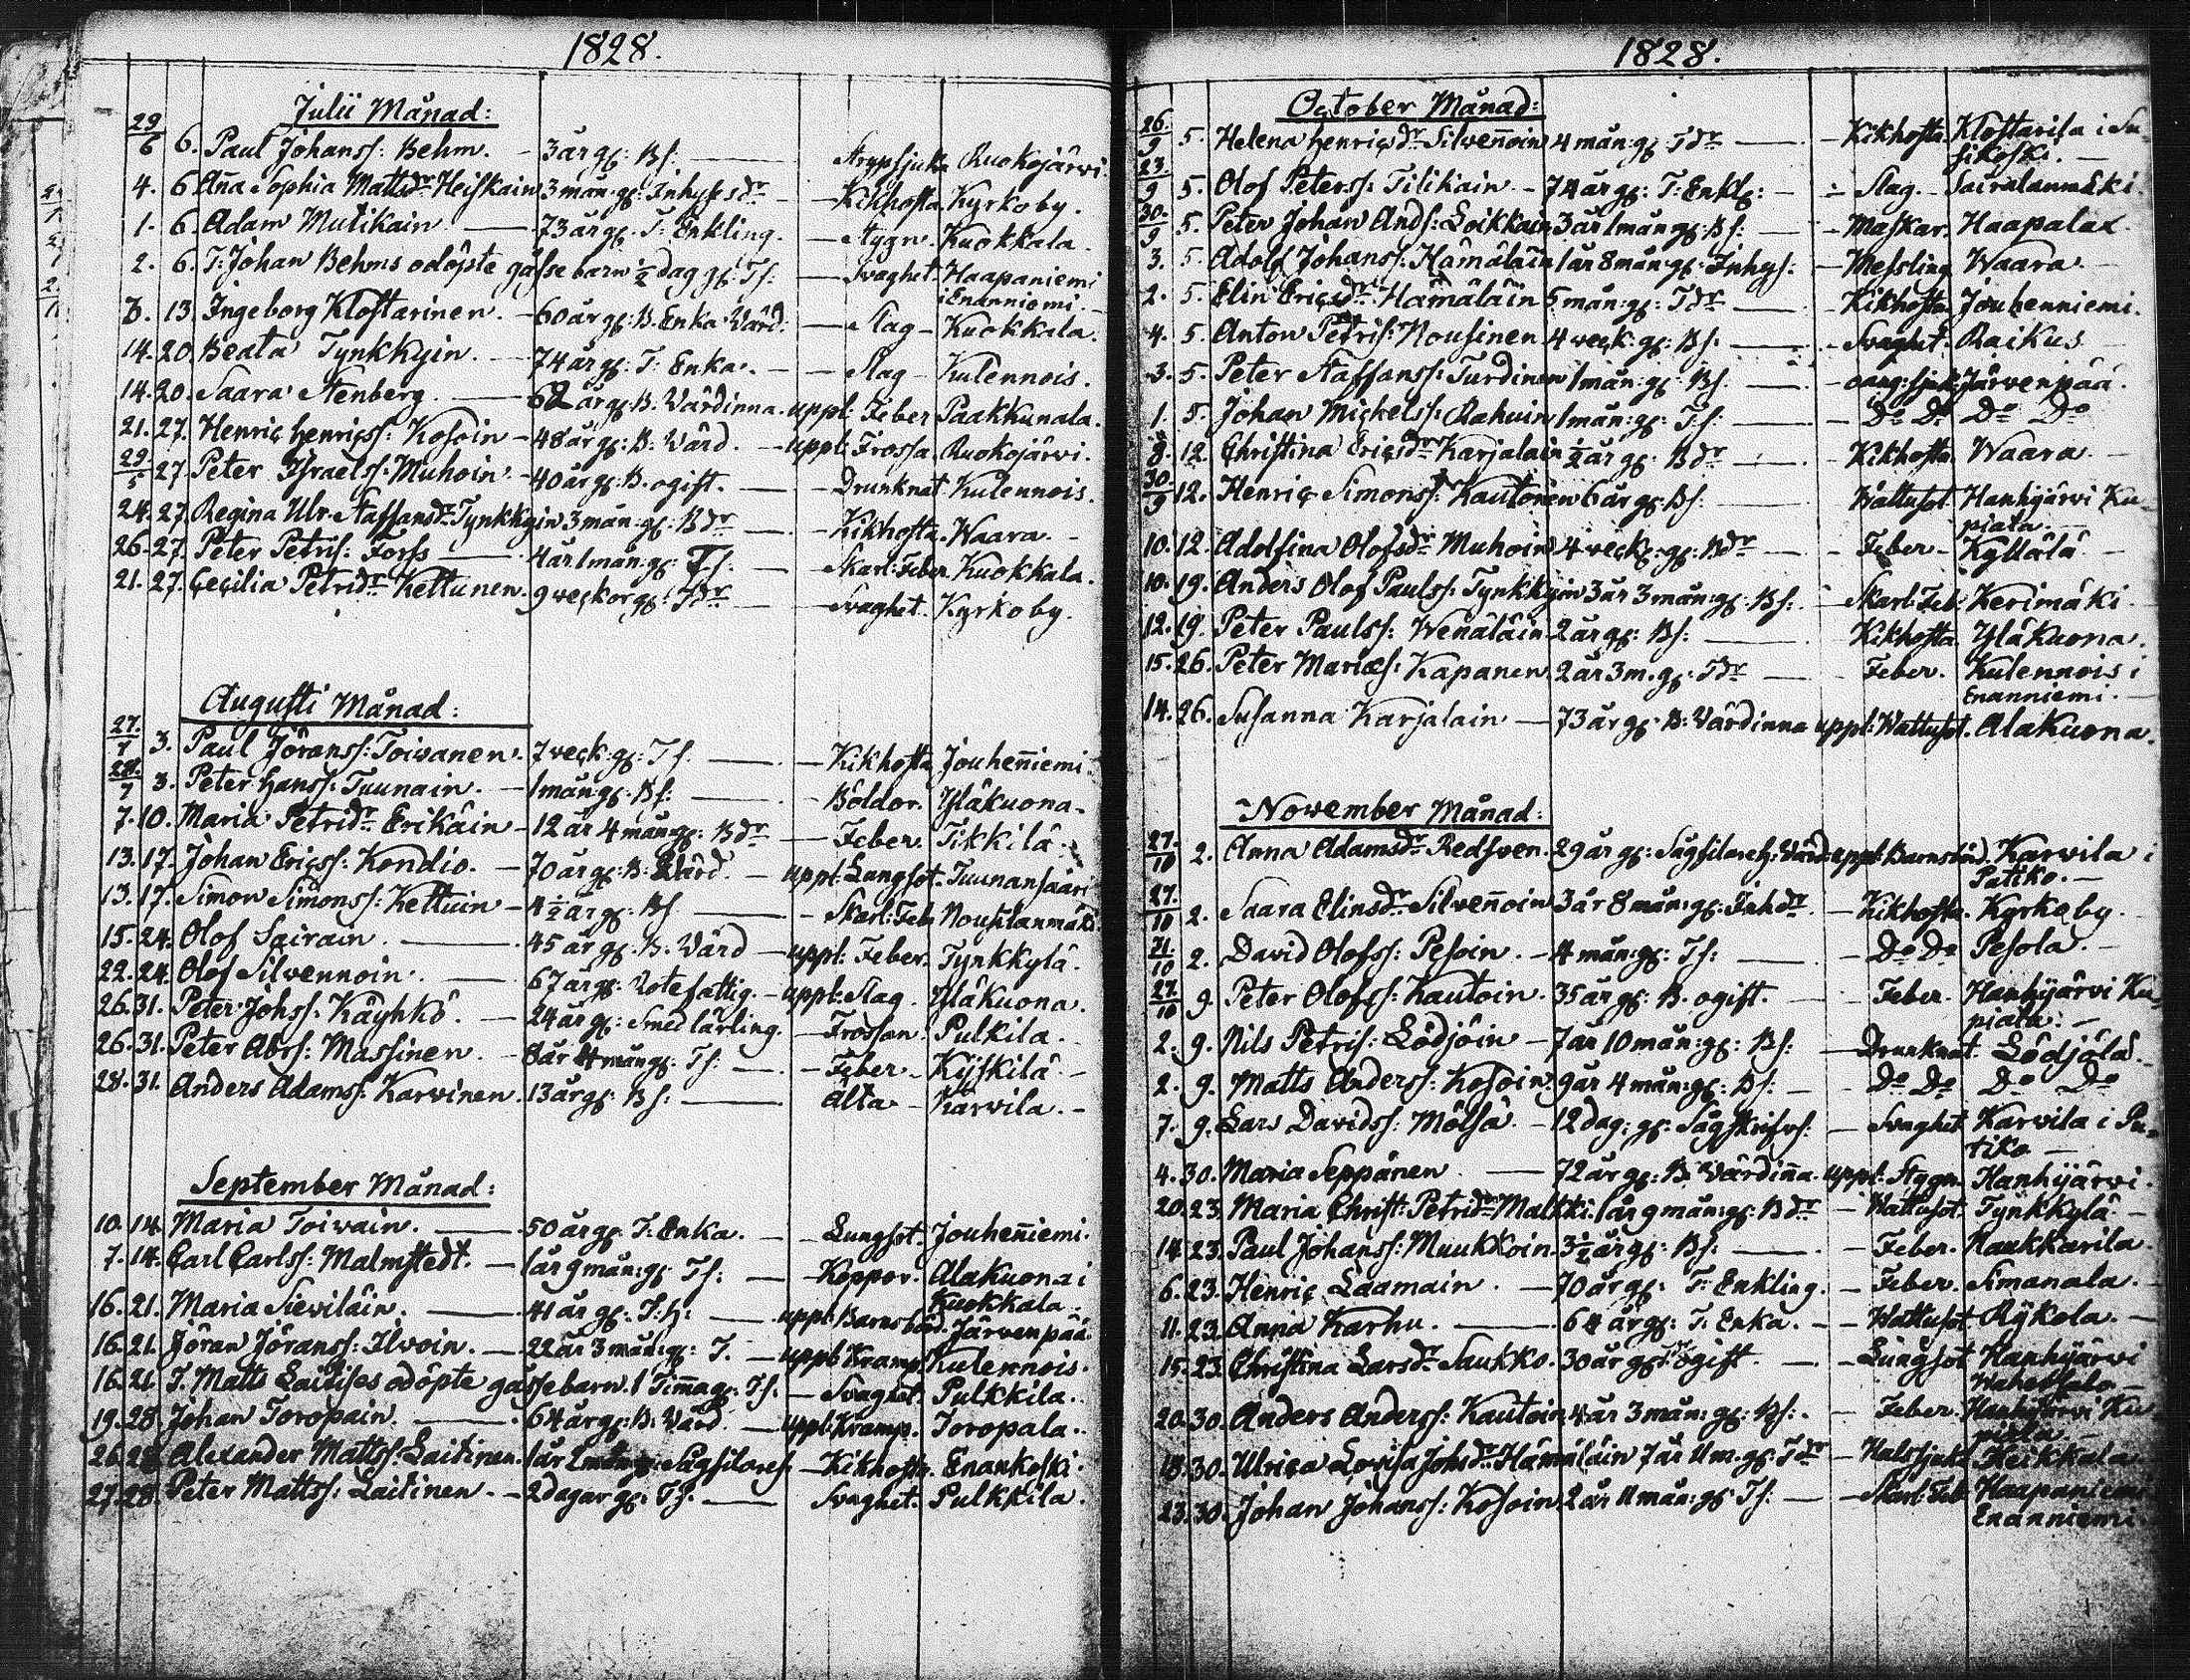 1828.
Julii Månad:
29/6 6. Paul Johanss: Behm. - 3 år gl: Bs: - Strypsjuka Ruokojärvi.
4. 6. Anna Sophia Mattsdr Heiskain 3 mån: gl: Inhyses dr - Kikhosta. Kyrkoby.
1. 6. Adam Mutikain - 73 år gl: T: Enkling. - Stygn. Kuokkala.
2. 6. T: Johan Behms odöpte gåsse barn ½ dag gl: Ts: - Svaghet. Haapaniemi
i Enanniemi.
8. 13. Ingeborg Klostarinen. - 60 år gl: B. Enka Värd: - Slag - Kuokkala.
14. 20. Beata Tynkkyin. - 74 år gl: T: Enka. - Slag - Kulennois.
14. 20. Saara Stenberg. - 62 år gl: B. Värdinna. uppl: Feber Paakkunala.
21. 27. Henric Henricss: Kosoin - 48 år gl: B: Värd. - uppl: Frossa. Ruokojärvi.
29/5 27. Peter Israelss: Muhoin - 40 år gl: B. ogift. - Drunknat Kulennois.
24. 27. Regina Ulr. Staffansdr Tynkkyin 3 mån: gl: Bdr - Kikhosta. Waara.
26. 27. Peter Petris: Forss - 4 år 1 mån: gl: Ts: - Skarl: Feber Kuokkala.
21. 27. Cecilia Petridr Kettunen. 9 veckor gl: Tdr - Svaghet. Kyrkoby.
Augusti Månad:
27./7 3. Paul Jöranss: Toivanen. 7 veck: gl: Ts. - Kikhosta Jouhenniemi.
28./7 3. Peter Hanss: Tuunain. - 1 mån gl: Bs: - Böldor. Yläkuona.
7. 10. Maria Petridr Erikäin - 12 år 4 mån: gl: Bdr - Feber. Tikkilä.
13. 17. Johan Ericss: Kondio. - 70 år gl: B: Värd. - uppl: Lungsot. Tuunansaari
13. 17. Simon Simonss: Kettuin - 4½ år gl: Bs - Skarl: Feb: Nousılanmäki.
15. 24. Olof Sairain. - 45 år gl: B: Värd - uppl: Feber. Tynkkylä.
22. 24. Olof Silvennoin. - 67 år gl: Rotefattig. - uppl: Slag. Yläkuona.
26. 31. Peter Johss: Käyhkö. - 24 år gl: Smed lärling. - Frossan. Pulkila.
26. 31. Peter Abrs: Massinen. - 8 år 4 mån gl: Ts: - Feber - Kyskilä.
28. 31. Anders Adamss: Karvinen. 13 år gl: Bs: - Älta - Karvila.
September Månad:
10. 14. Maria Toivain. - 50 år gl: T: Enka. - Lungsot. Jouhenniemi.
7. 14. Carl Carlss: Malmstedt. - 1 år 9 mån: gl: Ts: - Koppor. Alakuona i
Kuokkala.
16. 21. Maria Sieviläin. - 41 år gl: T: h: - uppl: Barnsbörd. Järvenpää.
16. 21. Jöran Jöranss: Ilvoin. - 22 år 3 mån: gl: T. - uppl: Kramp. Kulennois.
16. 21. T. Matts Laitises odöpte gåsse barn. 1 Timma gl: Ts: - Svaghet. Pulkkila.
19. 28. Johan Toropain. - 64 år gl: B: Värd. - uppl: Kramp. Toropala.
26. 28. Alexander Mattss: Laitinen. 1 år gl: Sågsilares. - Kikhosta. Enankoski.
27. 28. Peter Mattss: Laitinen. - 2 dagar gl: Ts. - Svaghet. Pulkkila.
1828.
October Månad:
26./9 5. Helena Henricsdr Silvennoin 4 mån: gl: Tdr - Kikhosta. Klostarila i Su-
sikoski.
23./9 5. Olof Peterss: Tilikain - 74 år gl: T: Enkl: - Slag. - Sairalanmäki.
30./9 5. Peter Johan Ands: Loikkain 3 år 1 mån gl: Bs: - Maskar. Haapala.
3. 5. Adolf Johanss: Hämäläin 1 år 8 mån: gl: Inhys: - Messling Waara.
2. 5. Elin Ericsdr Hämäläin 5 mån: gl: Tdr - Kikhosta. Jouhenniemi.
4. 5. Anton Petris: Nousinen 4 veck: gl: Bs. - Svaghet. Raikus
3. 5. Peter Staffanss: Turdinen 1 mån: gl: Bs: - oang: sjuk: Järvenpää.
1. 5. Johan Mickelss: Rahuin 1 mån: gl: Ts: - Do Do Do Do
8. 12. Christina Ericsdr Karjalain ½ år gl: Bdr - Kikhosta. Waara.
30./9 12. Henric Simonss: Kautonen 6 år gl: Bs: Wattusot. Hanhijärvi Ku-
piala.
10. 12. Adolfina Olofsdr Muhoin 4 veck: gl: Bdr - Feber - Kyllälä
10. 19. Anders Olof Paulss: Tynkkyin 3 år 3 mån: gl: Bs: - Skarl: Feb: Kerimäki
12. 19. Peter Paulss: Wenäläin 2 år gl: Bs: - Kikhosta. Yläkuona.
15. 26. Peter Marias: Kapanen. 2 år 3 m. gl: Tdr - Feber. Kulennois i
Enanniemi.
14. 26. Susanna Karjalain - 73 år gl: B: Värdinna uppl: Wattusot. Alakuona.
November Månad:
27./10 2. Anna Adamsdr Redsven. 29 år gl: uppl: Barnsbörd. Karvila i
Putiko.
27./10 2. Saara Elinsdr Silvennoin 3 år 8 mån: gl: Inhdr. - Kikhosta. Kyrkoby.
21/10 2. David Olofss: Pesoin. - 4 mån: gl: Ts: - Do Do Pesola.
27./10 9. Peter Olofss: Kautoin. 35 år gl: B. ogift. - Feber. Hanhijärvi Ku-
piala.
2. 9. Nils Petris: Lödjöin - 7 år 10 mån: gl: Bs: - Drunknat. Lödjölä.
2. 9. Matts Anderss: Kosoin 9 år 4 mån: gl: Bs: - Do Do Do Do
7. 9. Lars Davidss: Mölsä. - 12 dag: gl: Sågskrifvs: - Svaghet Karvila i Pu-
tiko
4. 30. Maria Seppänen - 72 år gl: B: Värdinna. uppl: Stygn. Hanhijärvi.
20. 23. Maria Christ: Petridr Malkki. 1 år 9 mån: gl: Bdr - Wattusot. Tynkkylä
14. 23. Paul Johanss: Muukkoin. 3½ år gl: Bs: - Feber. Haukkarila.
6. 23. Henric Laamain. - 70 år gl: T: Enkling. - Feber. Simanala.
11. 23. Anna Karhu. - 64 år gl: T. Enka. - Wattusot. Rykola.
15. 23. Christina Larsdr Saukko. 30 år gl: ogift. - Lungsot Hanhijärvi
20. 30. Anders Anderss: Kautoin 4 år 3 mån: gl: Bs: - Feber. Hanhijärvi Ku
piala
18. 30. Ulrica Lovisa Johsdr Hämäläin 7 år 11 m. gl: Tdr - Halssjuka Heikkala
23. 30. Johan Johanss: Kosoin 2 år 11 mån: gl: Ts: - Skarl: Feb: Haapaniemi
Enanniemi.